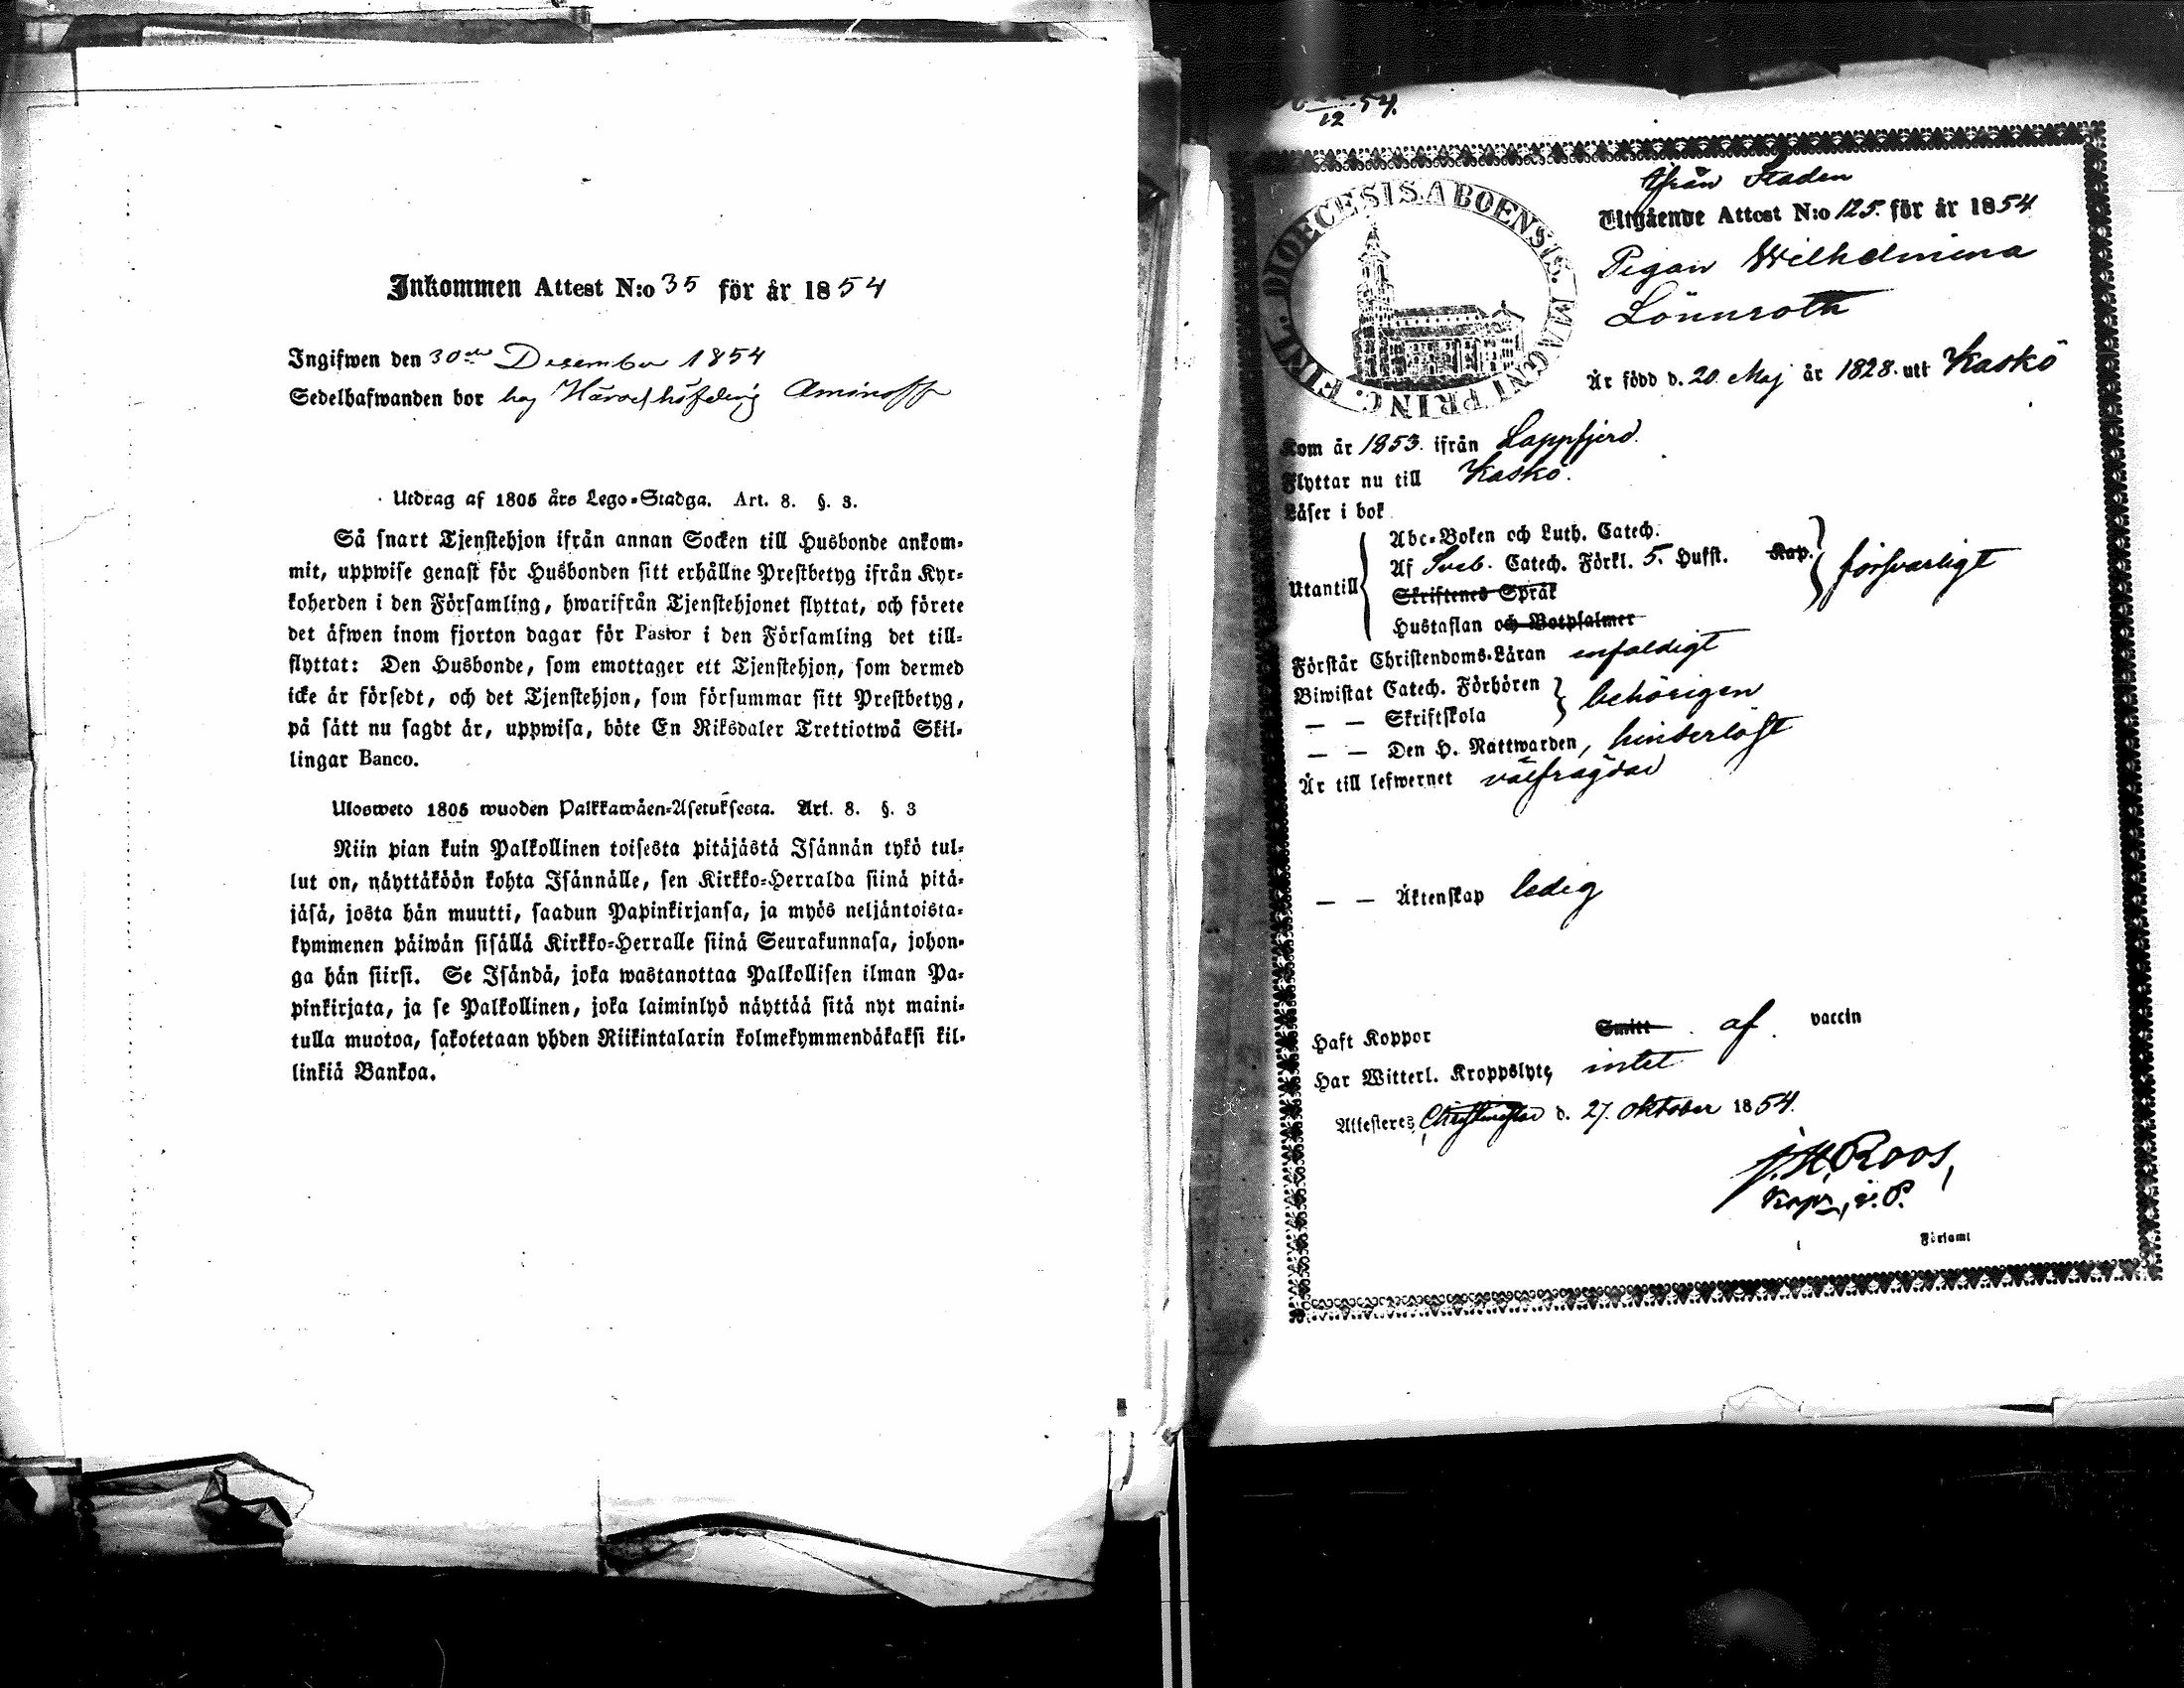 Inkommen Attest N:o 35 för år 1854
Ingifwen den 30de December 1854
Sedelhafwanden bor hos Häradshöfding Aminoff
Utdrag af 1805 års Lego-Stadga. Art. 8. §. 3.
Så snart Tjenstehjon ifrån annan Socken till Husbonde ankom-
mit, uppwise genast för Husbonden sitt erhållne Prestbetyg ifrån Kyr-
koherden i den Församling, hwarifrån Tjenstehjonet flyttat, och förete
det äfwen inom fjorton dagar för Pastor i den Församling det till-
flyttat: Den Husbonde, som emottager ett Tjenstehjon, som dermed
icke är försedt, och det Tjenstehjon, som försummar sitt Prestbetyg,
på sätt nu sagdt är, uppwisa, böte En Riksdaler Trettiotwå Skil-
lingar Banco.
Ulosweto 1805 wuoden Palkkawäen-Asetuksesta. Art. 8. §. 3
Niin pian kuin Palkollinen toisesta pitäjästä Isännän tykö tul-
lut on, näyttäköön kohta Isännälle, sen Kirkko-Herralda siinä pitä-
jäsä, josta hän muutti, saadun Papinkirjansa, ja myös neljäntoista-
kymmenen päiwän sisällä Kirkko-Herralle siinä Seurakunnasa, johon-
ga hän siirsi. Se Isändä, joka wastanottaa Palkollisen ilman Pa-
pinkirjata, ja se Palkollinen, joka laiminlyö näyttää sitä nyt maini-
tulla muotoa, sakotetaan yhden Riikintalarin kolmekymmendäkaksi kil-
linkiä Bankoa.
12 54.
DIOECESIS ABOENSIS. MAGNI PRINC. FINL.
Ifrån Staden
Utgående Attest N:o 125. för år 1854
Pigan Wilhelmina
Lönnroth
Är född d. 20 Maj år 1828. uti Kaskö
Kom år 1853. ifrån Lappfjerd.
Flyttar nu till Kaskö.
Läser i bok
Abc-Boken och Luth. Catech.
Utantill Af Sveb. Catech. Förkl. 5. Hufst. Kap. försvarligt
Skriftenes Språk
Hustaflan och Botpsalmer
Förstår Christendoms-Läran enfaldigt
Biwistat Catech. Förhören behörigen
— — Skriftskola
— — Den H. Nattwarden, hinderlöst
Är till lefwernet välfrägdad
— — Äktenskap ledig
Haft Koppor Smitt af vaccin
Har Witterl. Kroppslyte intet
Attesteres, Christinestad d. 27. Oktober 1854.
J. H. Roos,
Kapn, v. P.
Församl